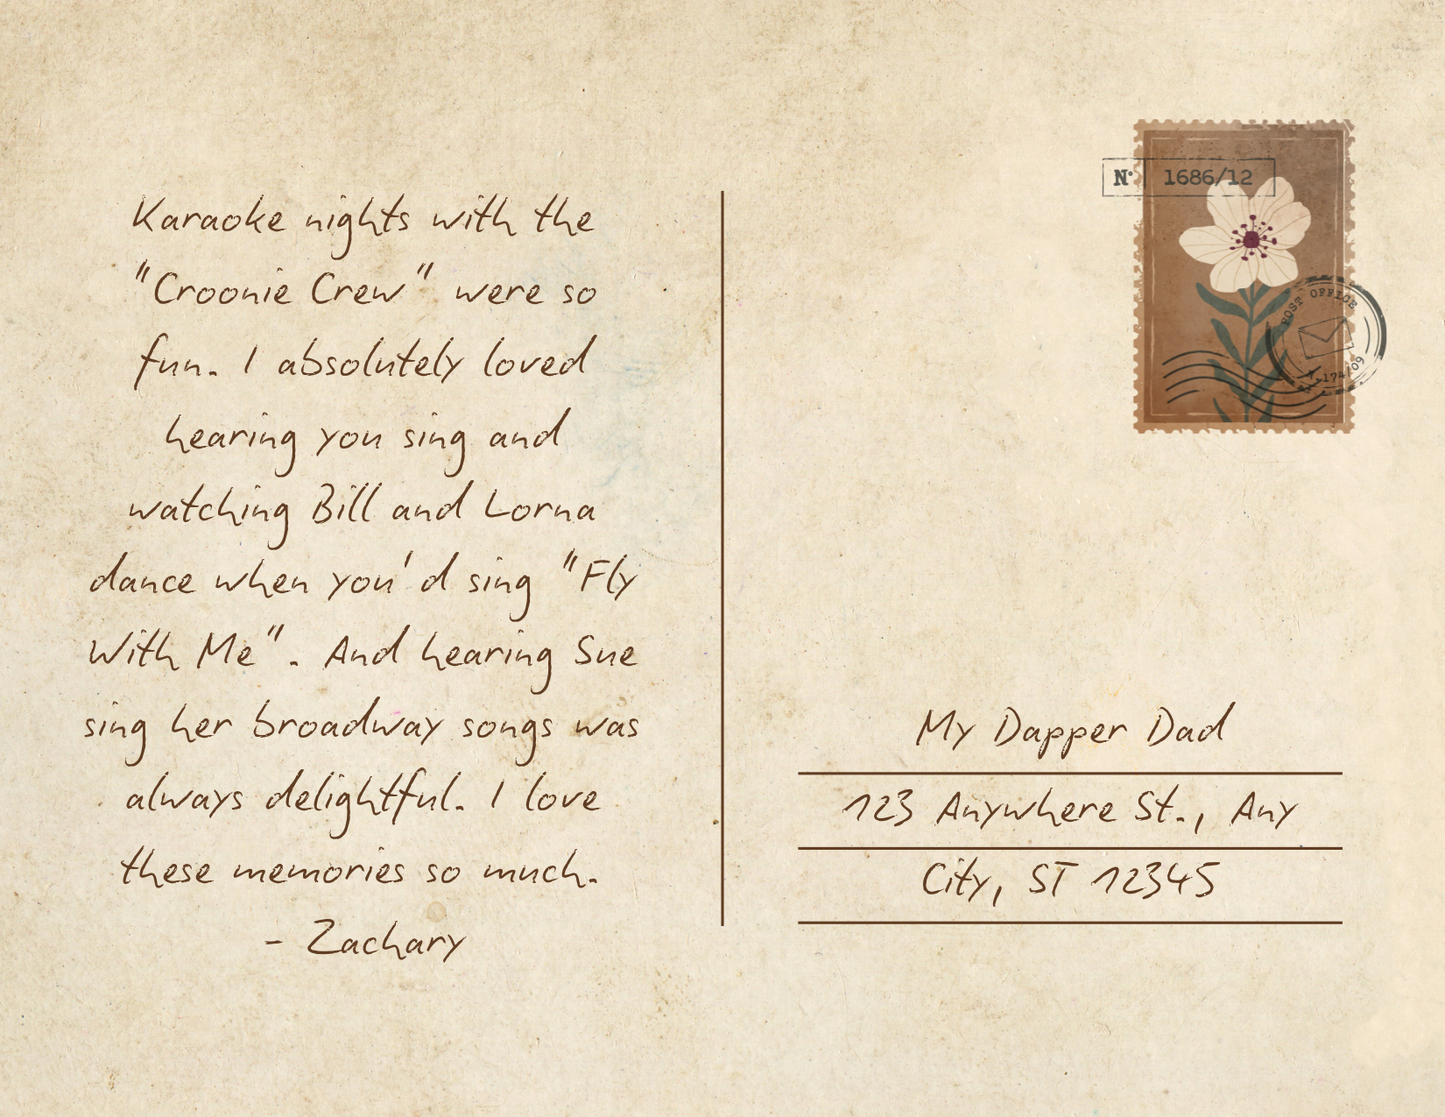 Karaoke nights with the
"Croonie Crew" were so
fun. I absolutely loved
hearing you sing and
watching Bill and Lorna
dance when you'd sing "Fly
With Me". And hearing Sue
sing her broadway songs was
always delightful. I love
these memories so much.
- Zachary
Nº 1686/12
POST OFFICE
My Dapper Dad
123 Anywhere St., Any
City, ST 12345